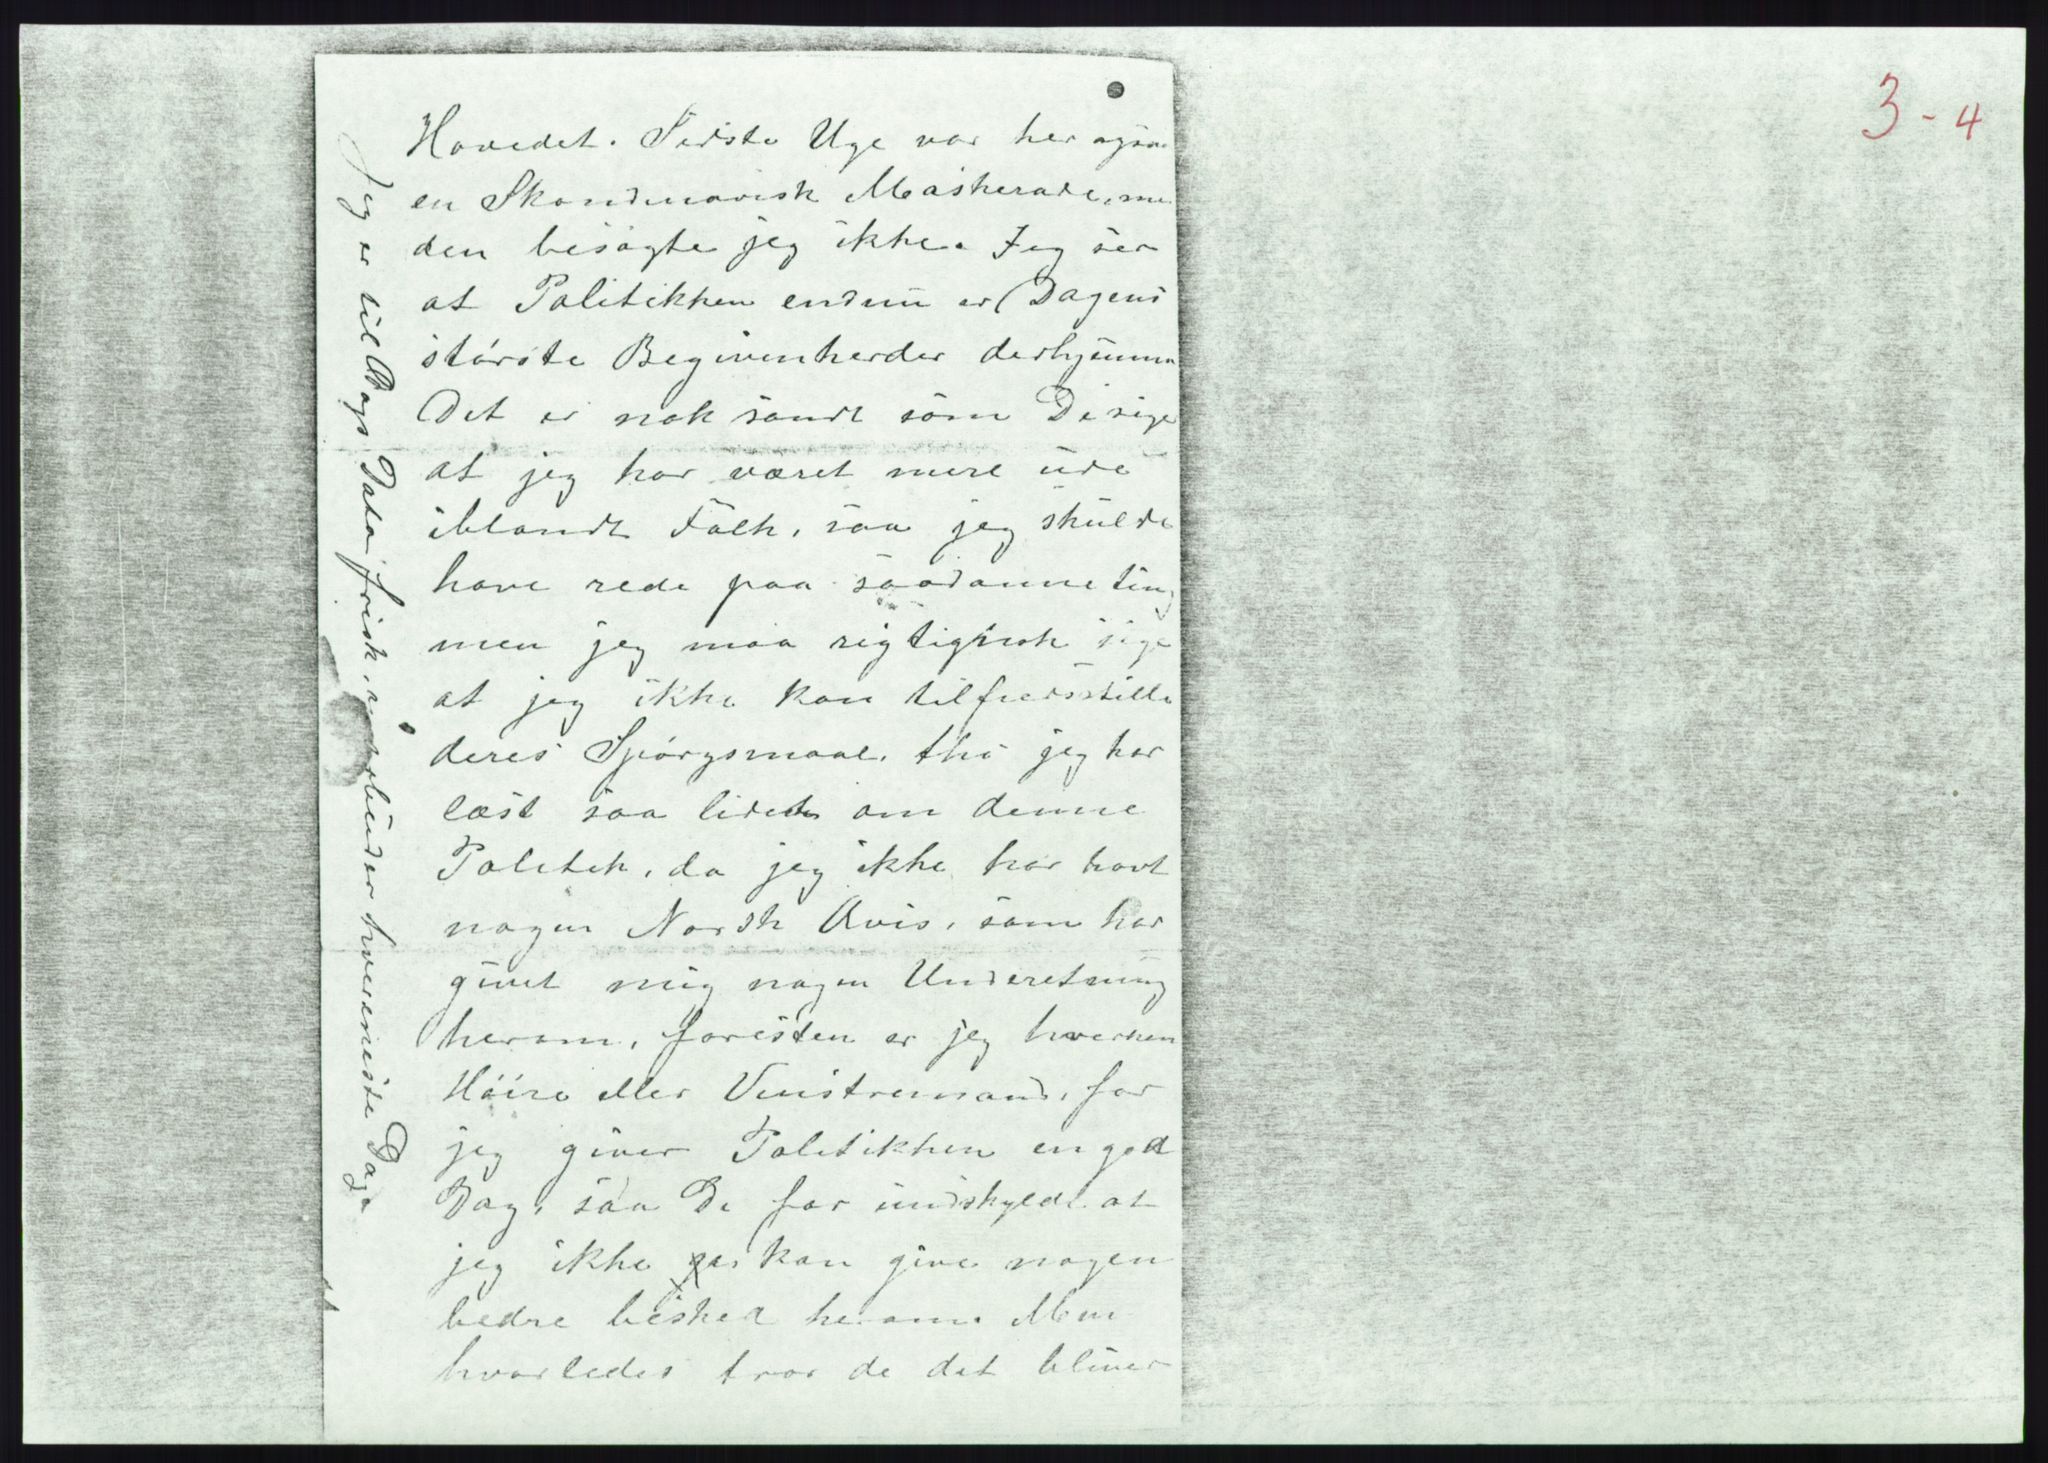 3-4
Hovedet. Sidste Uge var her ogsaa
en Skandinavisk Maskerade, men
den besøgte jeg ikke. Jeg ser
at Politikken endnu er Dagens
største Begivenheder derhjemme
Det er nok sandt som De siger
at jeg har været mere ude
iblandt Folk, saa jeg skulde
have rede paa saadanne ting
men jeg maa rigtignok sige
at jeg ikke kan tilfredsstille
deres Spørgsmaal, thi jeg har
læst saa lidet om denne
Politik, da jeg ikke har havt
nogen Norsk Avis, som har
givet mig nogen Underetning
herom, foresten er jeg hverken
Høire eller Venstremand, for
jeg giver Politikken en god
Dag, saa De faar undskylde at
jeg ikke kan give nogen
bedre besked herom. Men
hvorledes tror de det bliver
Jeg er til Dags Dato frisk, arbeider hvereneste Dag